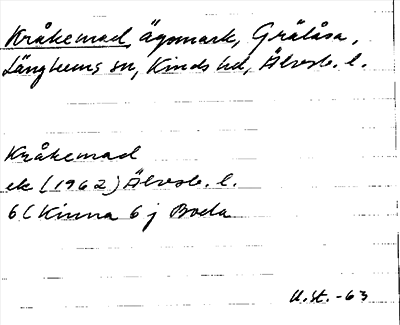 Kråkemad, ägomark, Grälåsa,
Länghems sn, Kinds hd, Älvsb. l.
Kråkemad
ek (1962) Älvsb. l.
6 C Kinna 6 j Boda
U.St. -63